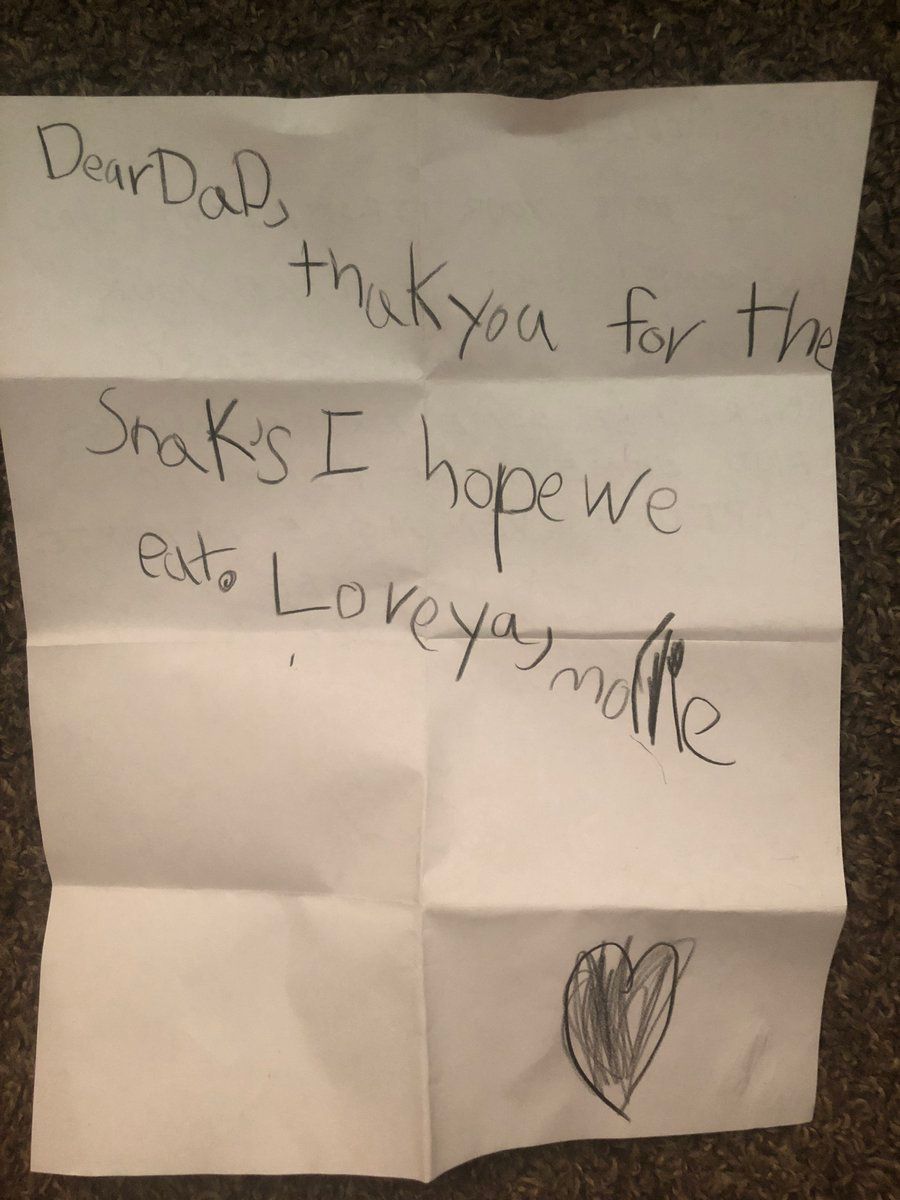 Dear DaD,
thak you for the
Snak's I hope we
eat. Love ya, mollie